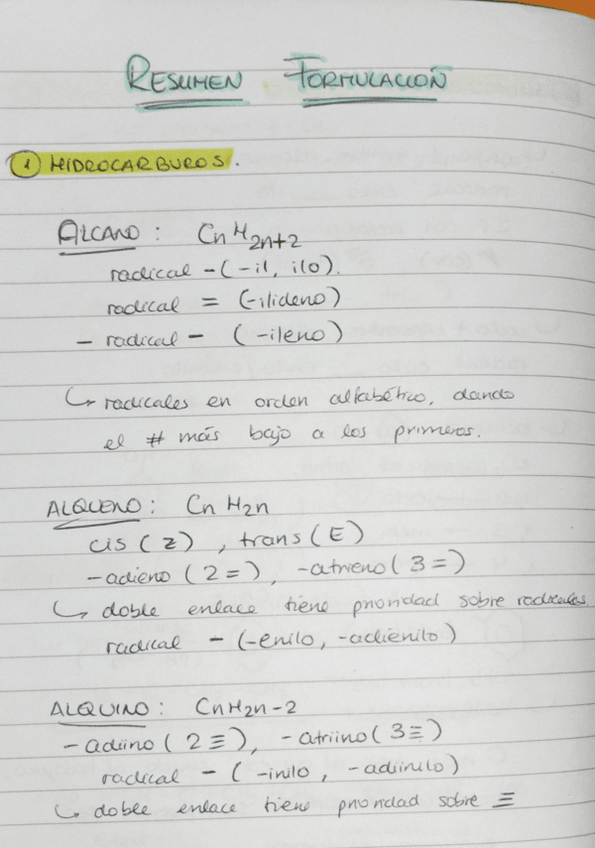 RESUMEN FORMULACIÓN
1 HIDROCARBUROS.
ALCANO : CnH2n+2
radical -(-il, ilo).
radical = (-ilideno)
- radical - (-ileno)
↳ radicales en orden alfabético, dando
el # más bajo a los primeros.
ALQUENO : CnH2n
cis (Z) , trans (E)
-adieno (2 =), -atrieno (3 =)
↳ doble enlace tiene prioridad sobre radicales.
radical - (-enilo, -adienilo)
ALQUINO : CnH2n-2
-adiino (2 ≡), -atriino (3 ≡)
radical - (-inilo, -adiinilo)
↳ doble enlace tiene prioridad sobre ≡